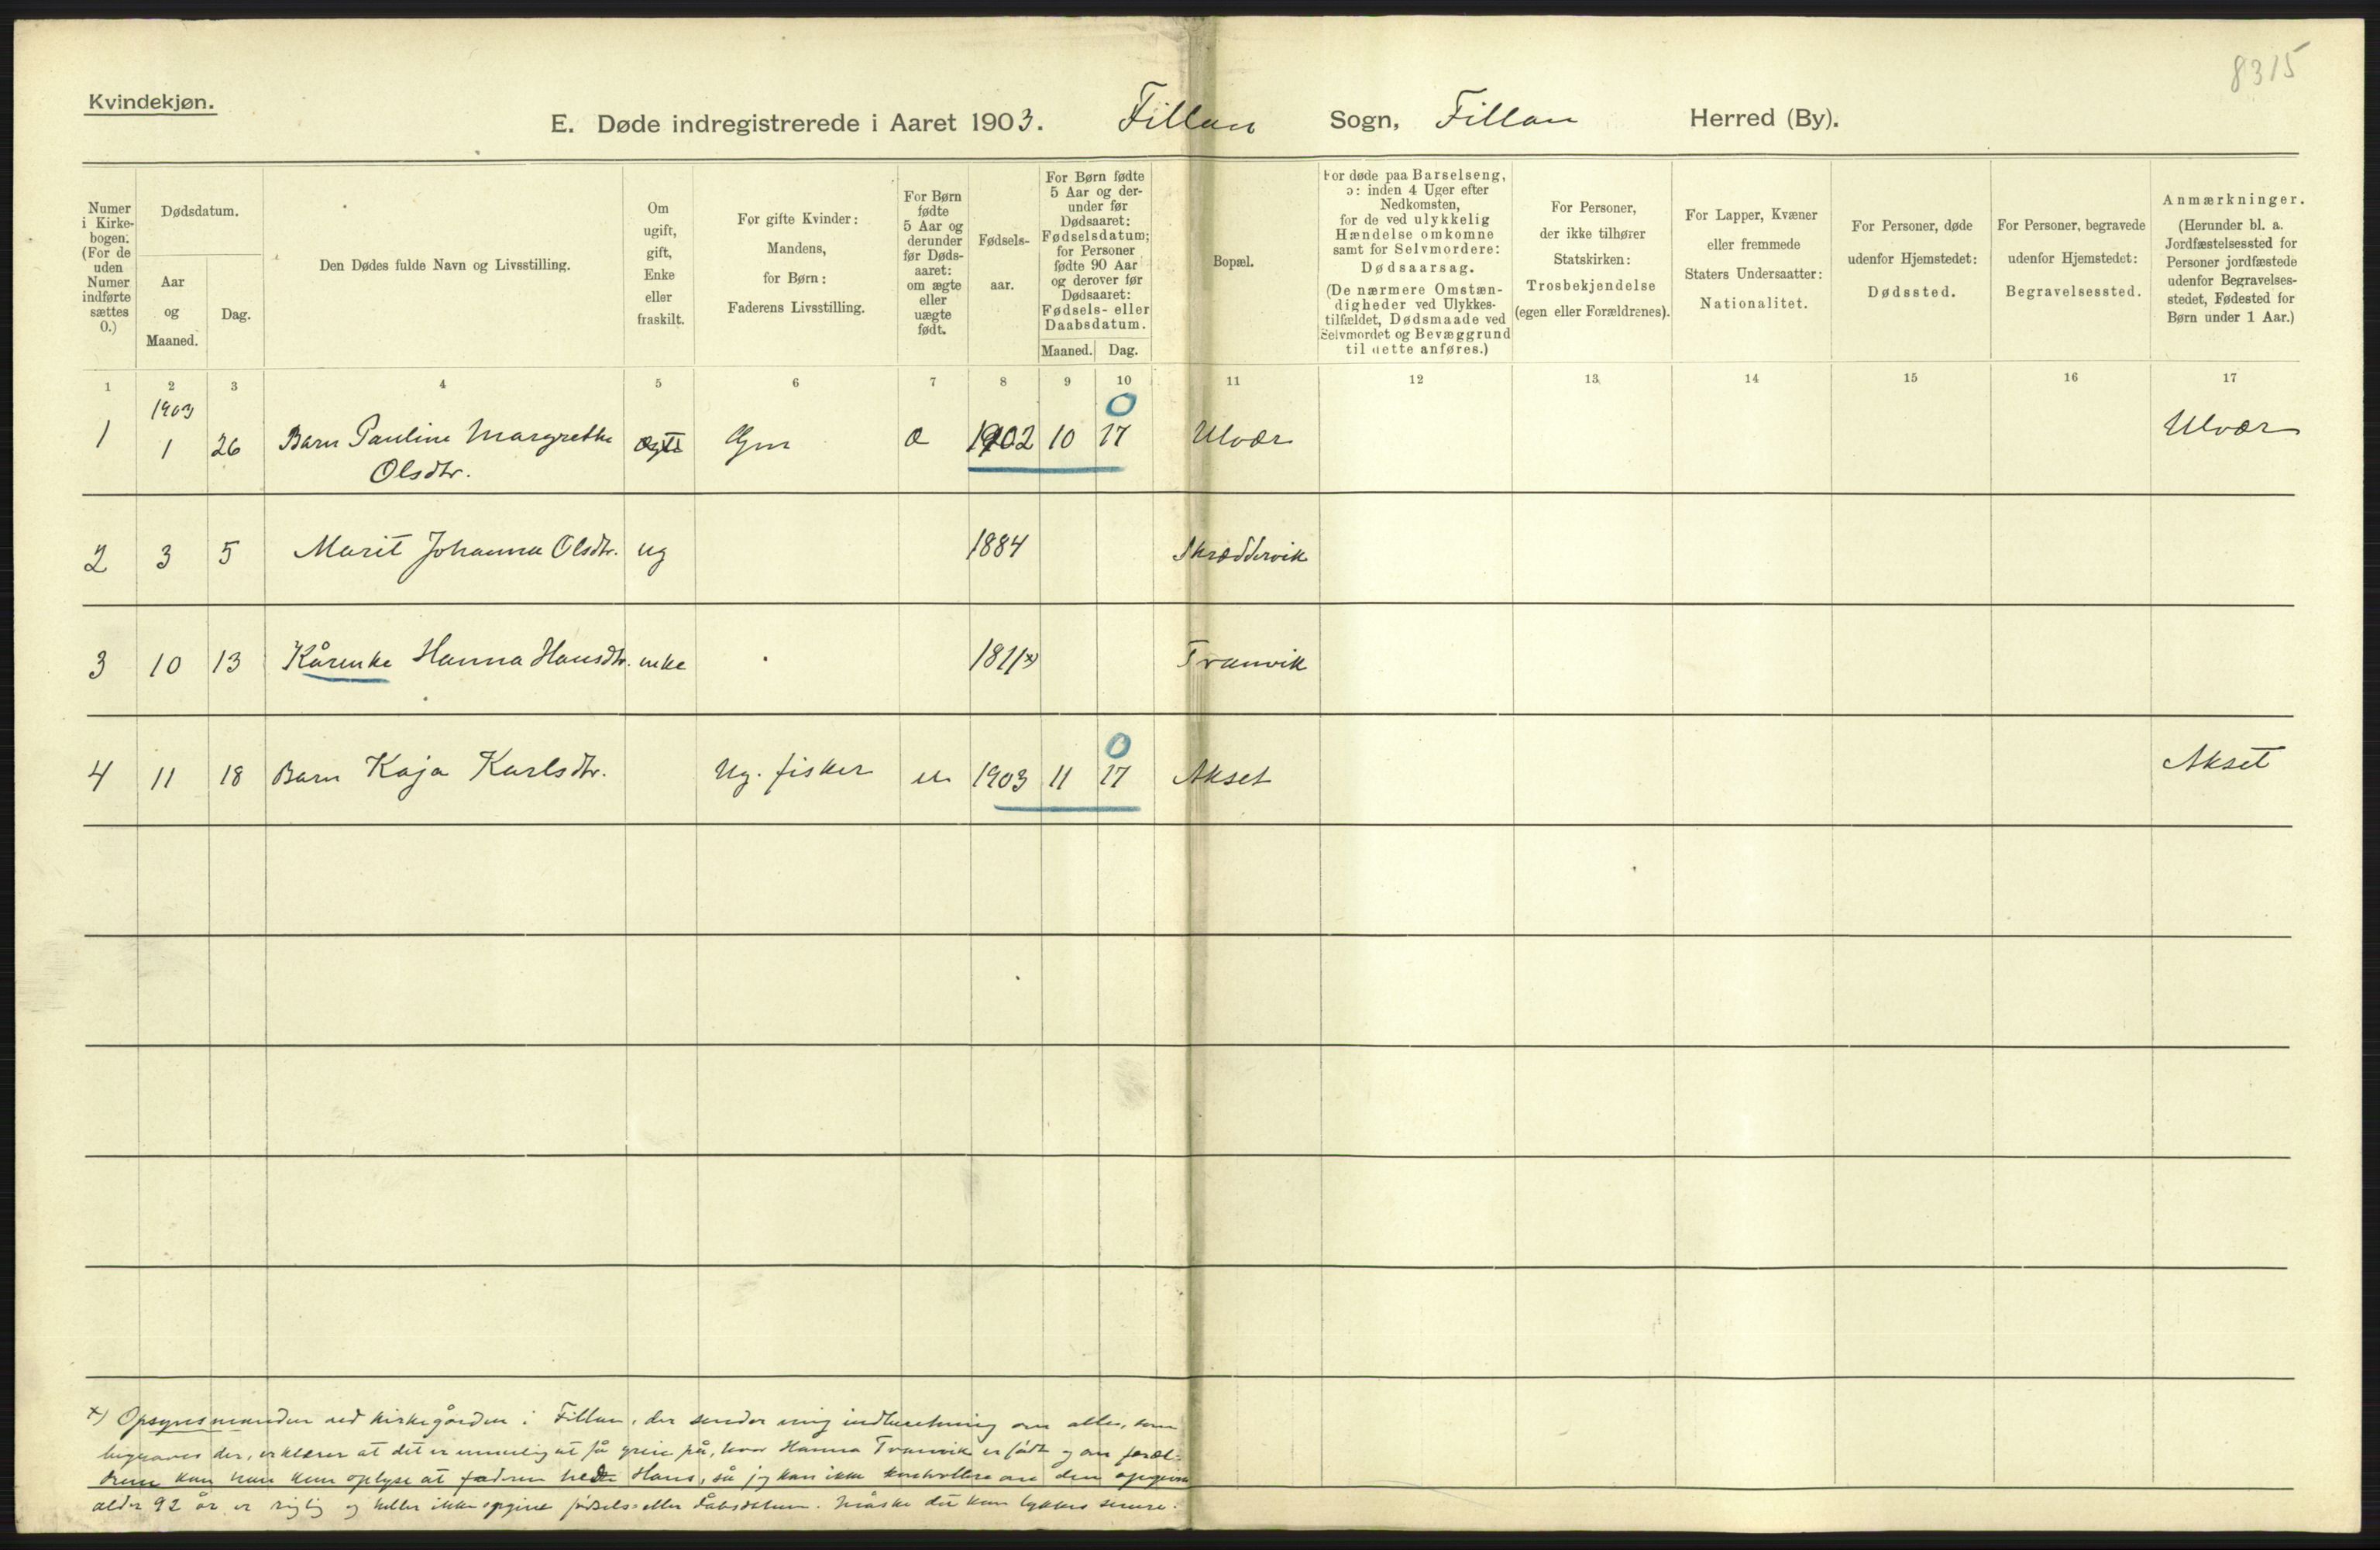 8315
Kvindekjøn.
E. Døde indregistrerede i Aaret 1903. Fillan Sogn, Fillan Herred (By).
Numer i Kirkebogen. (For de uden Numer indførte sættes 0.)
Dødsdatum.
Aar og Maaned.
Dag.
Den Dødes fulde Navn og Livsstilling.
Om ugift, gift, Enke eller fraskilt.
For gifte Kvinder: Mandens, for Børn: Faderens Livsstilling.
For Børn fødte 5 Aar og derunder før Dødsaaret: om ægte eller uægte født.
Fødselsaar.
For Børn fødte 5 Aar og derunder før Dødsaaret: Fødselsdatum; for Personer fødte 90 Aar og derover før Dødsaaret: Fødsels- eller Daabsdatum.
Maaned. Dag.
Bopæl.
For døde paa Barselseng, ɔ: inden 4 Uger efter Nedkomsten, for de ved ulykkelig Hændelse omkomne samt for Selvmordere: Dødsaarsag. (De nærmere Omstændigheder ved Ulykkestilfældet, Dødsmaade ved Selvmordet og Bevæggrund til dette anføres.)
For Personer, der ikke tilhører Statskirken: Trosbekjendelse (egen eller Forældrenes).
For Lapper, Kvæner eller fremmede Staters Undersaatter: Nationalitet.
For Personer, døde udenfor Hjemstedet: Dødssted.
For Personer, begravede udenfor Hjemstedet: Begravelsessted.
Anmærkninger. (Herunder bl. a. Jordfæstelsessted for Personer jordfæstede udenfor Begravelsesstedet, Fødested for Børn under 1 Aar.)
1 2 3 4 5 6 7 8 9 10 11 12 13 14 15 16 17
1903 0
1 1 26 Barn Pauline Margrethe Gm æ 1902 10 17 Ulvær Ulvær
Olsdtr.
2 3 5 Marit Johanna Olsdtr. ug 1884 Skræddervik
3 10 13 Kårenke Hanna Hansdtr. enke 1811x) Tranvik
0
4 11 18 Barn Kaja Karlsdtr. Ug. fisker u 1903 11 17 Akset Akset
x) Opsynsmanden ved kirkegården i Fillan, der sender mig indberetning om alle, som
begraves der, erklærer at det er umulig at få greie på, hvor Hanna Tranvik er født og om foræl-
drene kan han kun oplyse at faderen hedte Hans, så jeg kan ikke kontrollere om den opgivne
alder 92 år er rigtig og heller ikke opgive fødsels- eller dåbsdatum. Måske det kan lykkes senere.